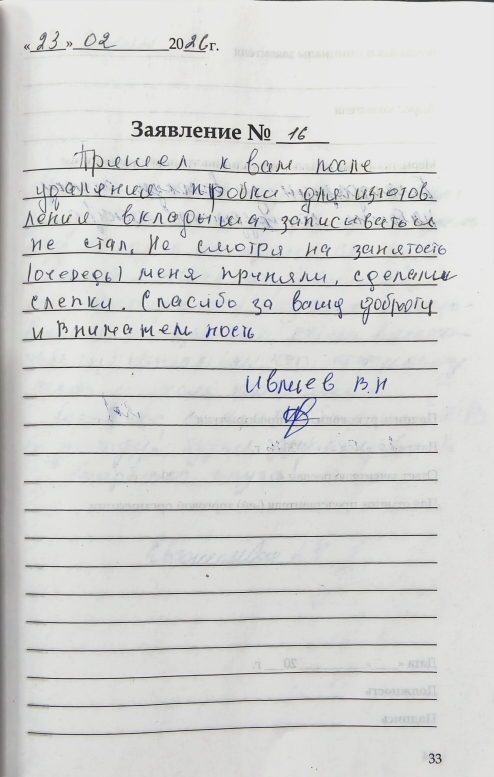 «23» 02 2026 г.
Заявление № 16
Пришел к вам после
удаления пробки для изготов
ления вкладыша, записываться
не стал. Не смотря на занятость
(очередь) меня приняли, сделали
слепки. Спасибо за вашу доброту
и внимательность
В.Н
33